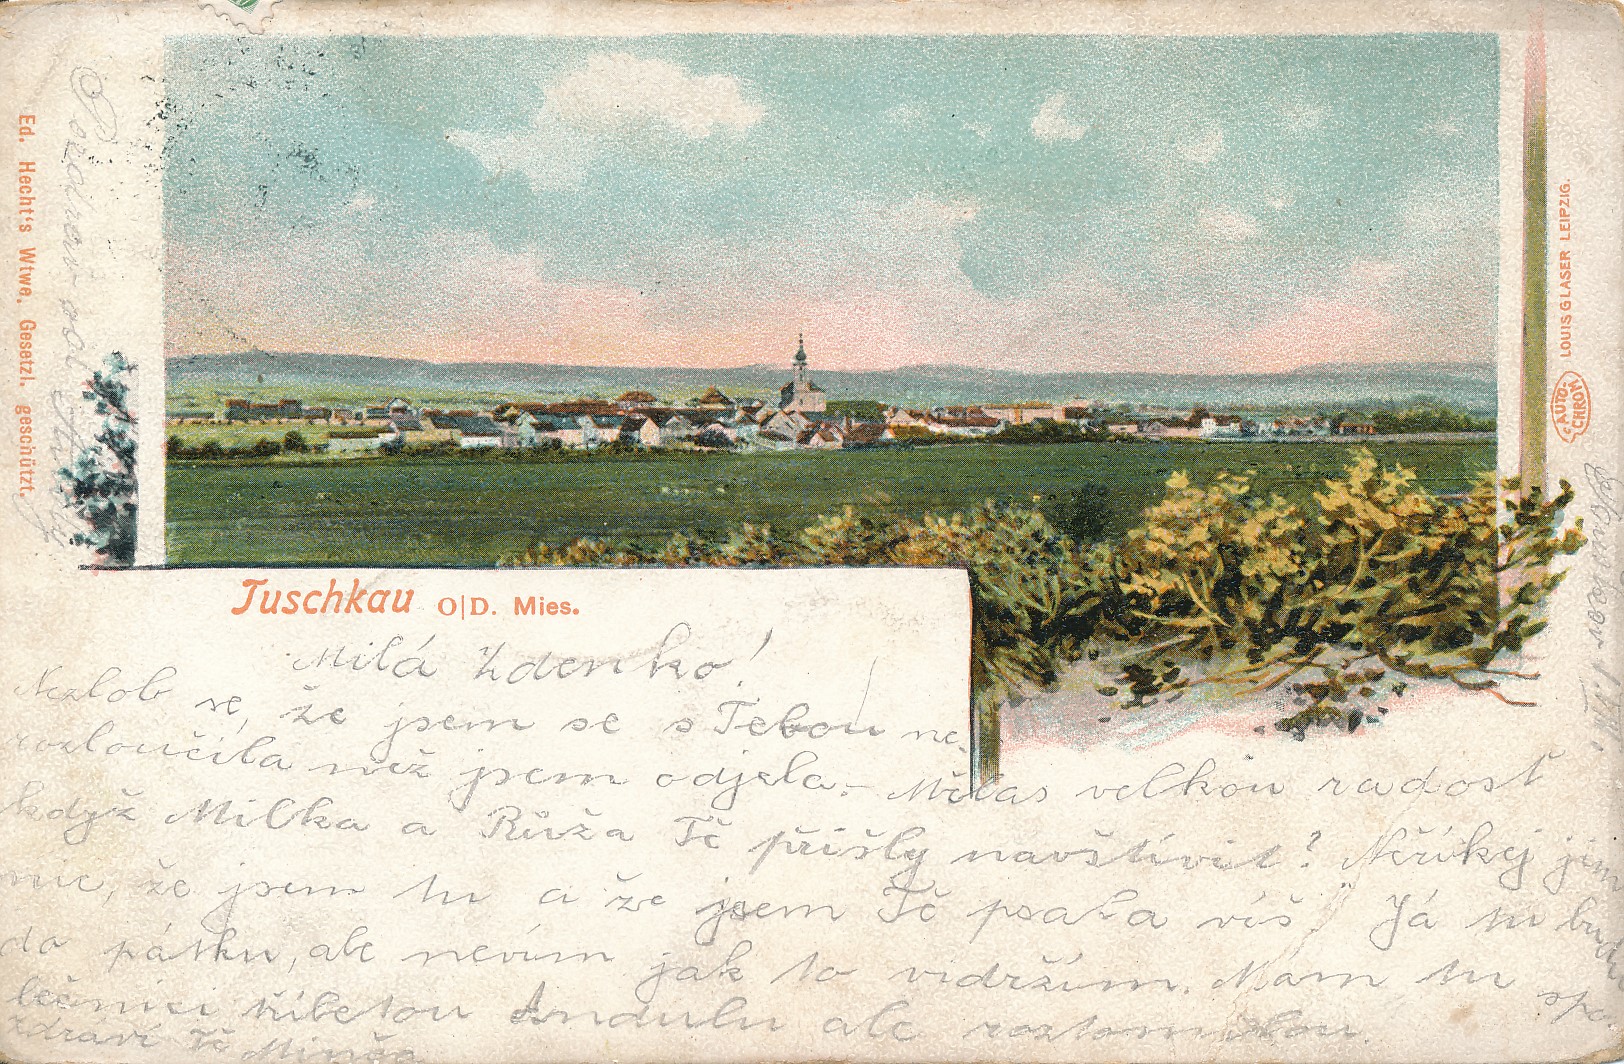 Ed. Hecht's Wtwe. Gesetzl. geschützt.
Pozdrav od
LOUIS GLASER LEIPZIG.
AUTO-
CHROM
Tuschkau O|D. Mies.
Milá Zdenko!
Nezlob se, že jsem se s Tebou ne-
rozloučila než jsem odjela. Mělas velkou radost
když Milka a Růža Tě přišly navštívit? Neříkej jim
nic, že jsem tu a že jsem Tě psala víš! Já tu budu
do pátku, ale nevím jak to vidržím. Mám tu spo-
lečnici tříletou Andulu ale roztomilou.
Zdraví Tě